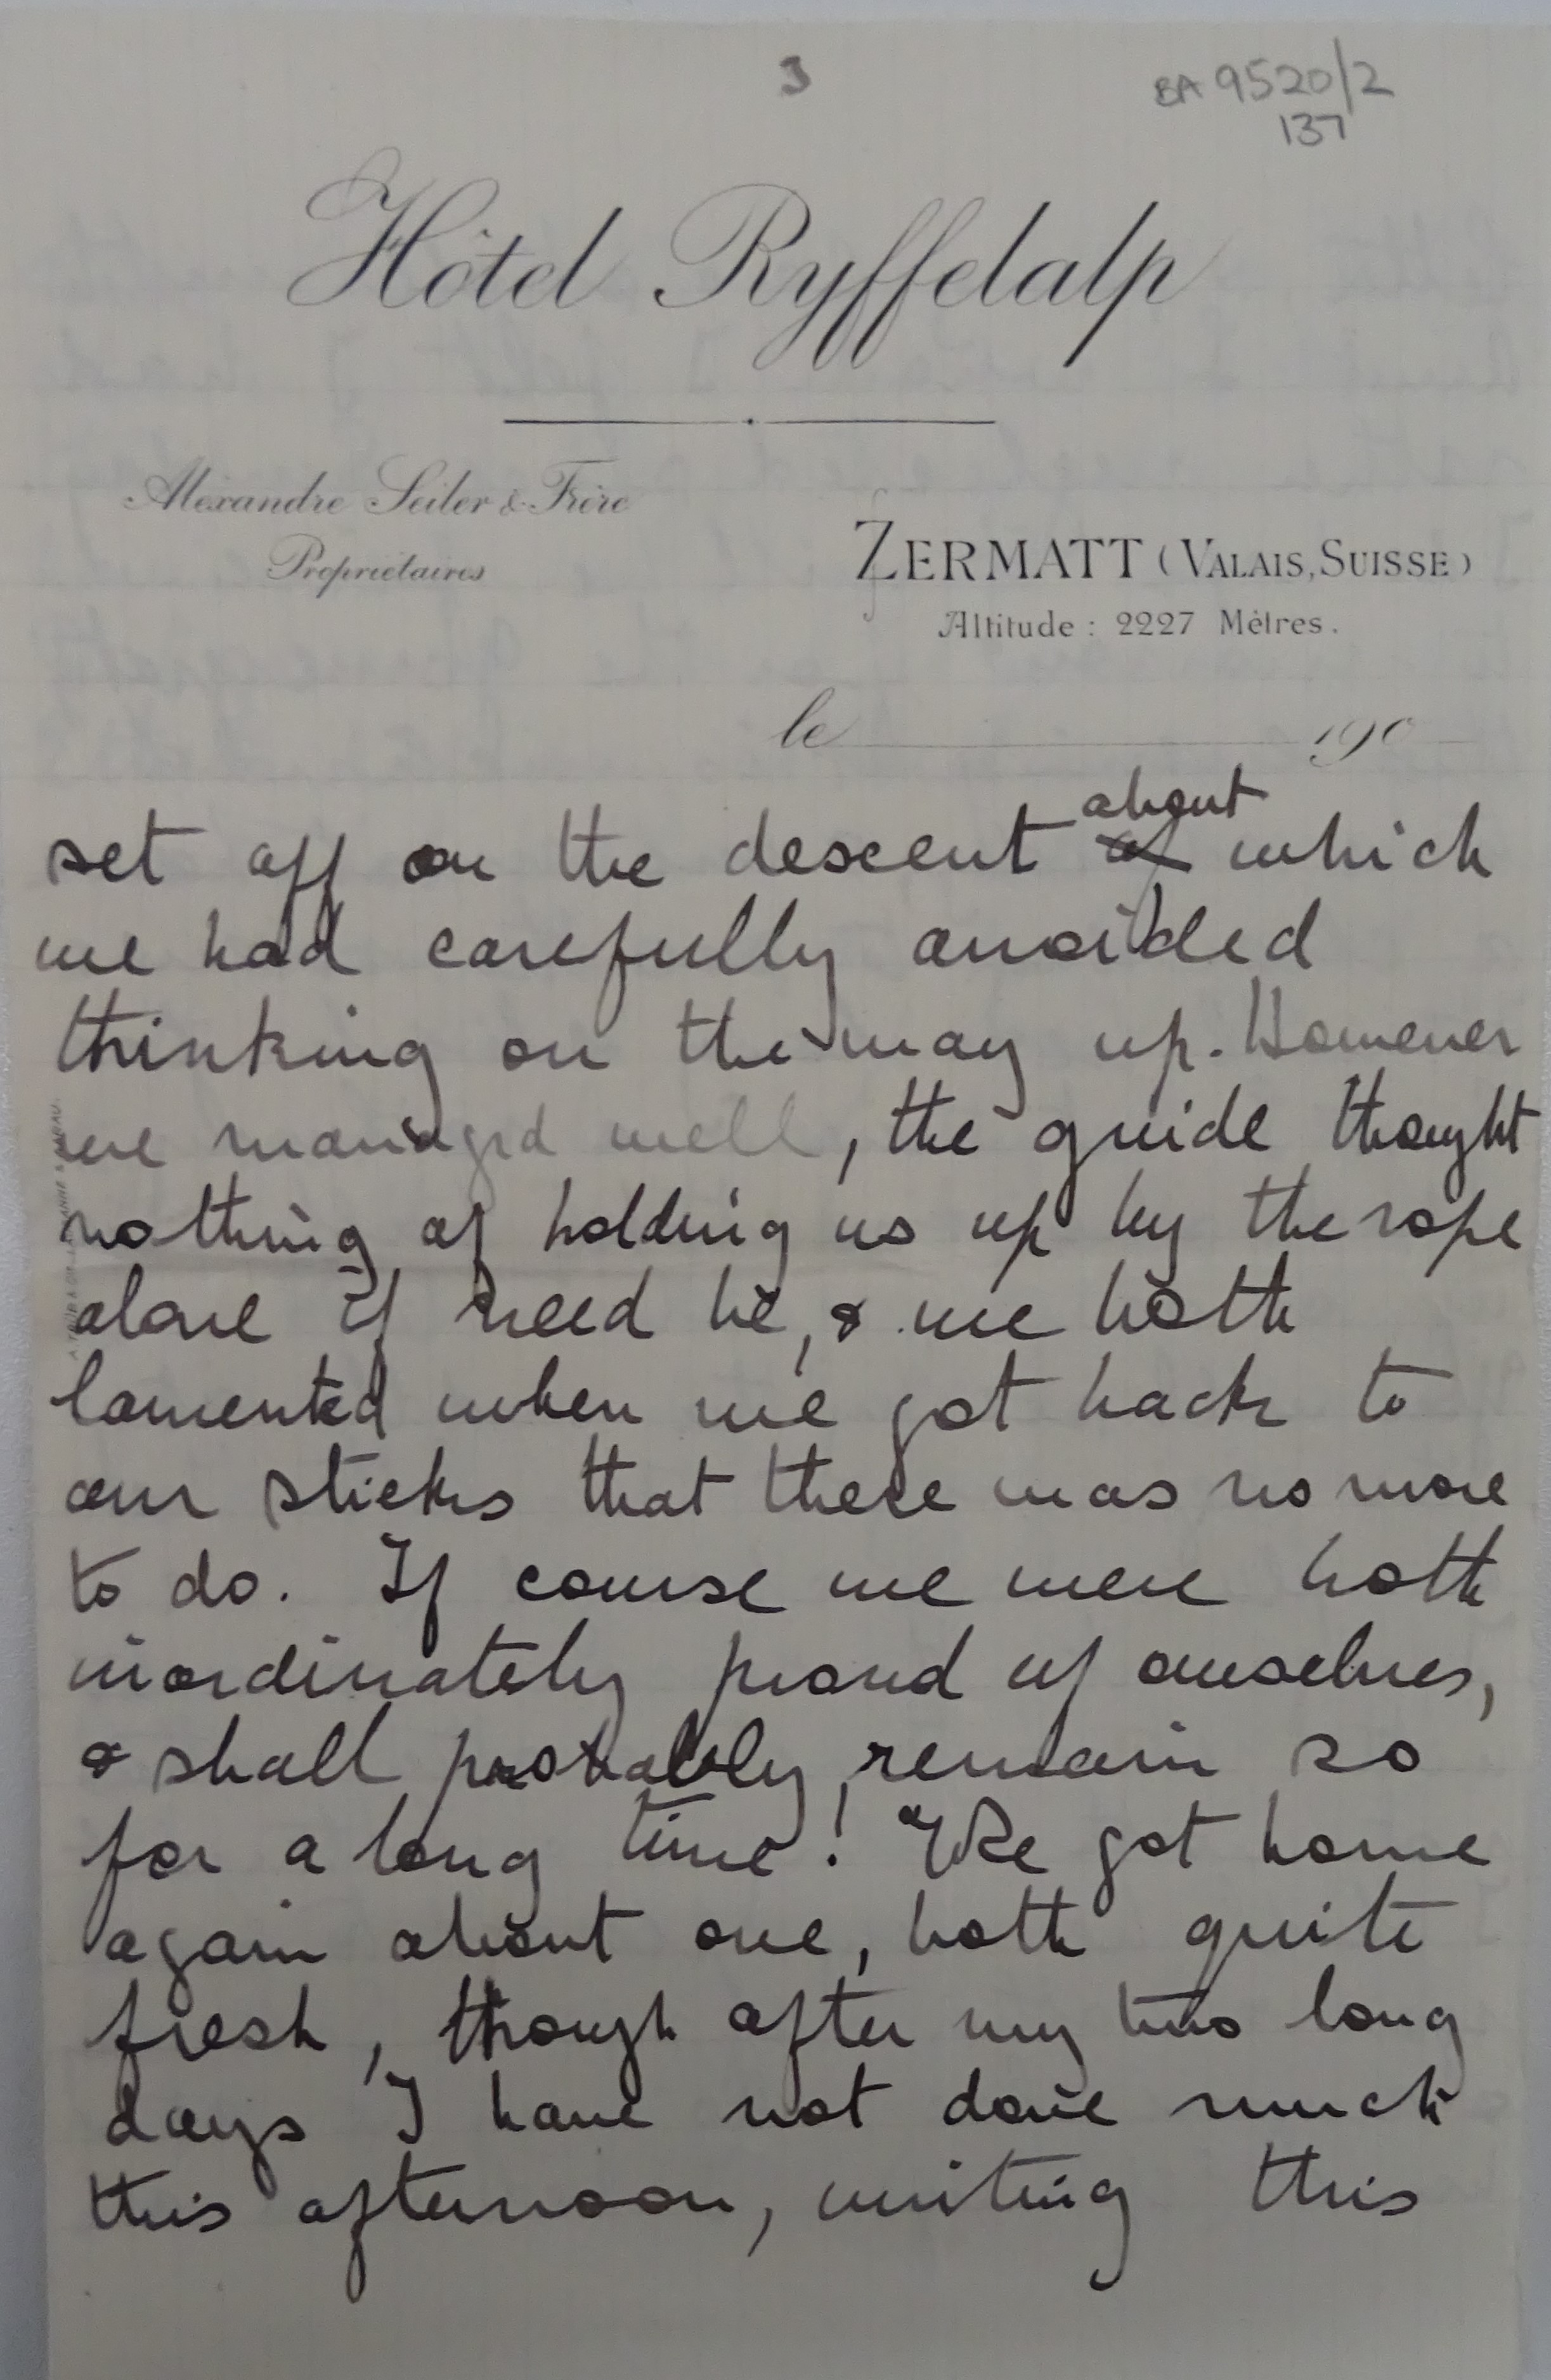 3
BA 9520/2
137
Hôtel Ryffelalp
Alexandre Seiler & Frère
Propriétaires
ZERMATT (VALAIS, SUISSE)
Altitude : 2227 Mètres.
le 190
about
set off on the descent of which
we had carefully avoided
thinking on the way up. However
we managed well, the guide thought
nothing of holding us up by the rope
alone if need be, & we both
lamented when we got back to
our sticks that there was no more
to do. Of course we were both
inordinately proud of ourselves,
& shall probably remain so
for a long time! We got home
again about one, both quite
fresh, though after my two long
days I have not done much
this afternoon, writing this